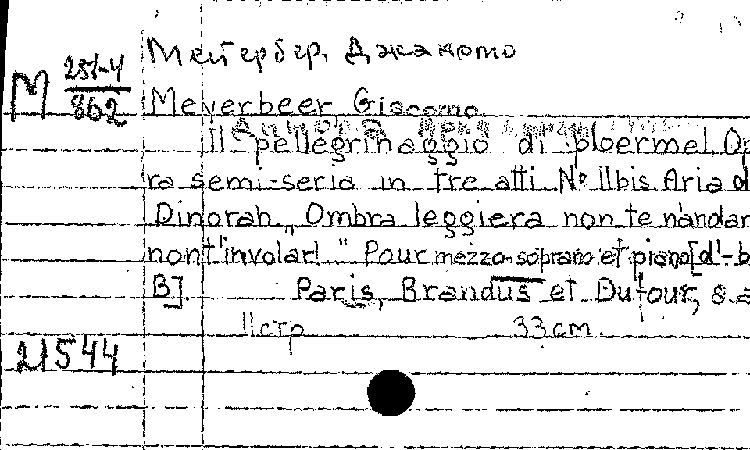 Мейербер, Джакомо
М 251-4
862
Meyerbeer Giacomo
Il pellegrinaggio di Ploermel. Op
ra semi-seria in tre atti N° 11bis Aria d
Dinorah „Ombra leggiera non te n'andar
non t'involar!" Pour mezzo-soprano et piano [d'-b
B]. Paris, Brandus et Dufour, s.a
11 стр 33 см.
21544